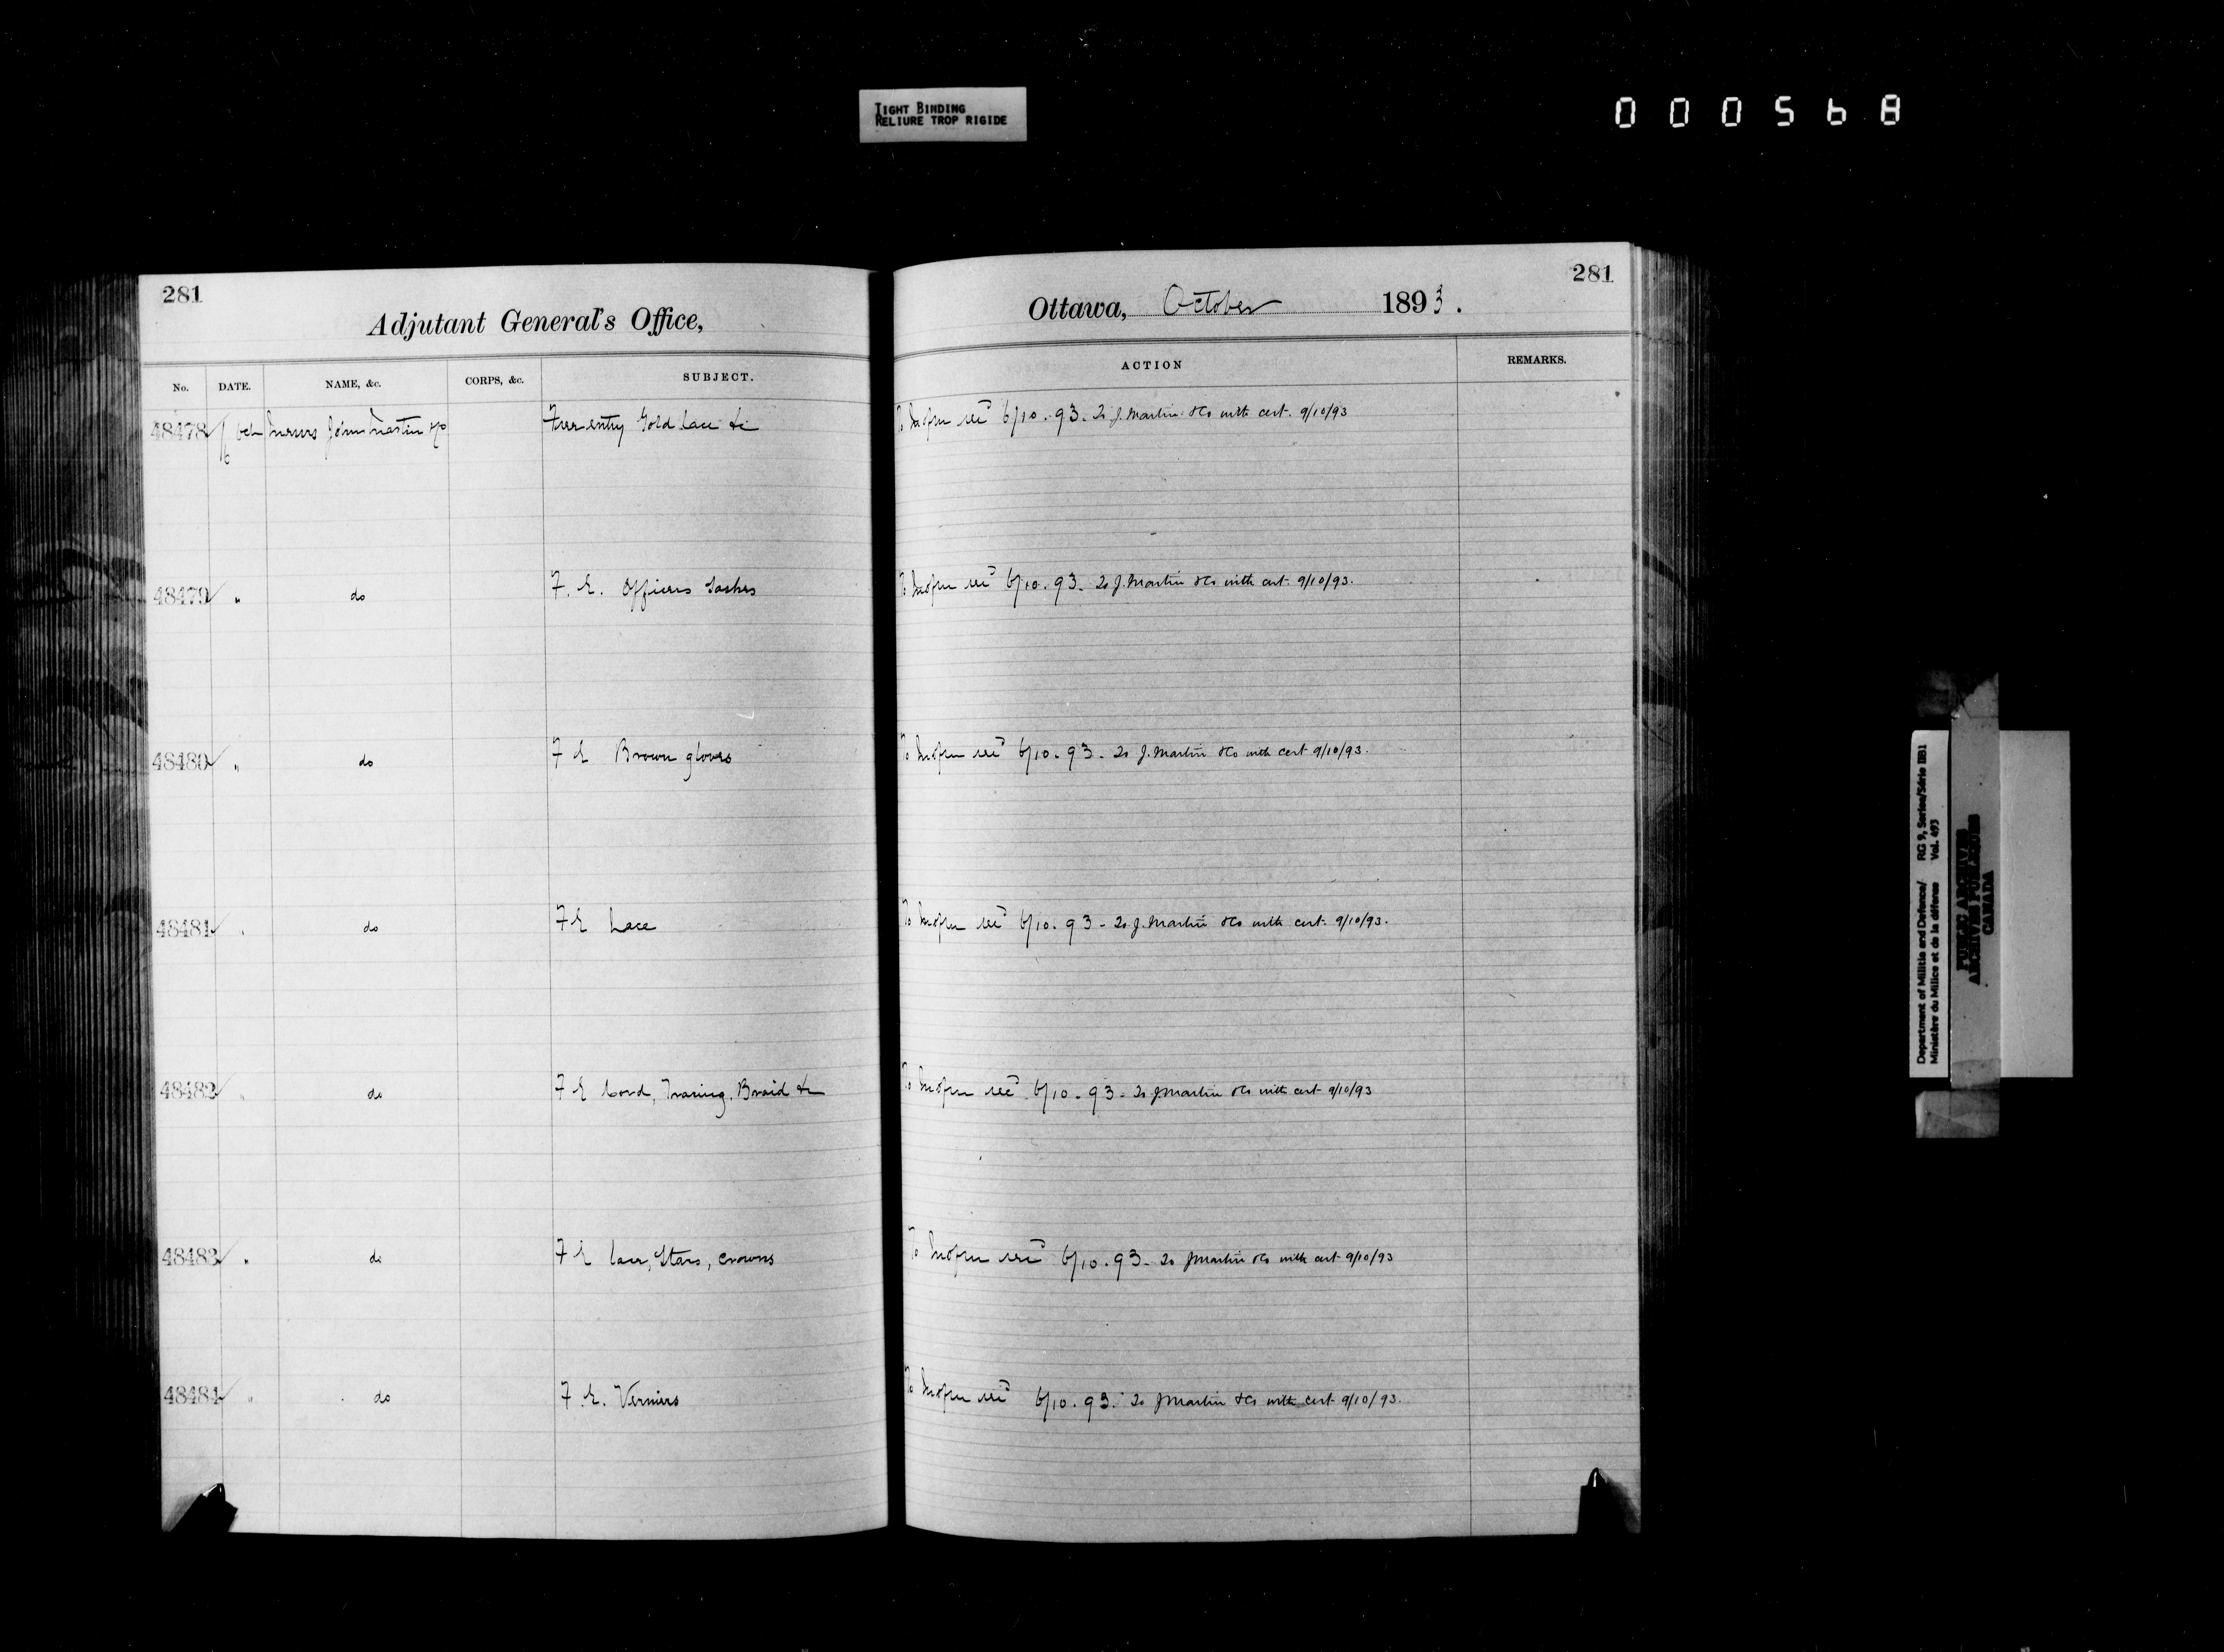 TIGHT BINDING
RELIURE TROP RIGIDE
000568
281
Adjutant General's Office,
No. DATE. NAME, &c. CORPS, &c. SUBJECT.
48478 6 Oct Messrs John Martin & Co Free entry Gold Lace &c
48479 " do F. E. Officers Sashes
48480 " do F E Brown gloves
48481 " do F E Lace
48482 " do F E Cord, Tracing, Braid &c
48483 " do F E Lace, Stars, crowns
48484 " do F. E.
281
Ottawa, October 1893.
ACTION REMARKS.
To 6/10.93. To J. Martin & Co with cert. 9/10/93
To 6/10.93. To J. Martin & Co with cert. 9/10/93.
To 6/10.93 - To J. Martin & Co with cert 9/10/93.
To 6/10.93 - To J. Martin & Co with cert. 9/10/93.
To 6/10.93 - To J Martin & Co with cert 9/10/93
To 6/10.93 - To J Martin & Co with cert 9/10/93
To 6/10.93. To J Martin & Co with cert 9/10/93.
Department of Militia and Defence/ RG 9, Series/Série IIB1
Ministère du Milice et de la défense Vol. 493
PUBLIC ARCHIVES
ARCHIVES PUBLIQUES
CANADA